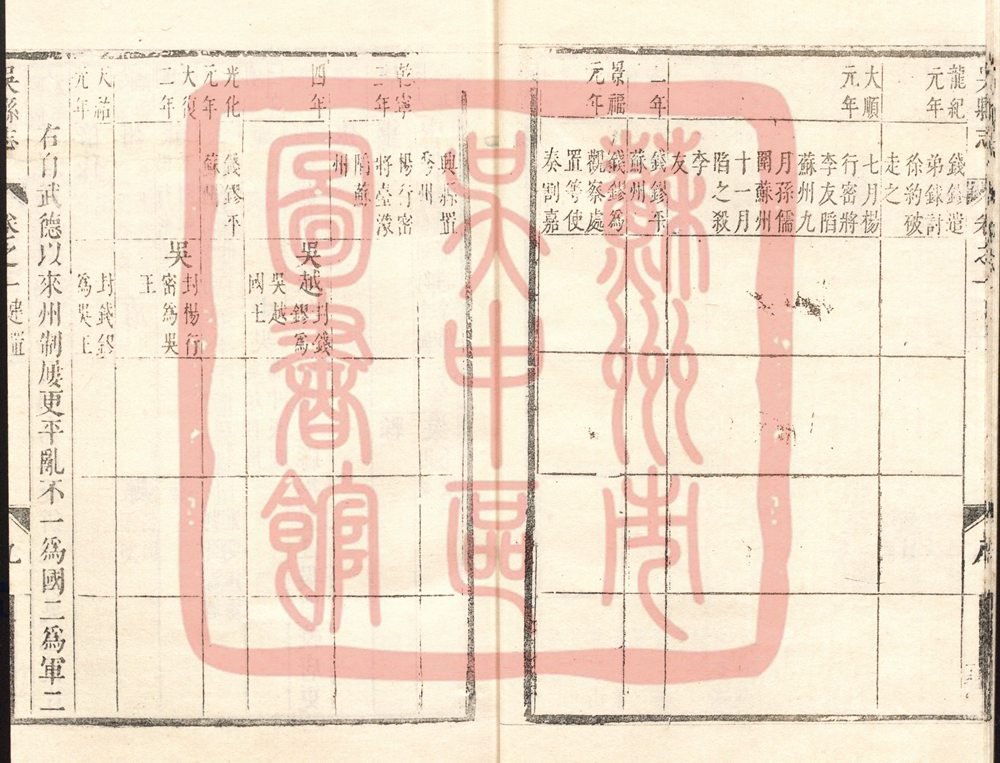 吳縣志
卷之一
龍紀
元年
錢鏐遣
弟銶討
徐約破
走之
大順
元年
七月楊
行密將
李友陷
蘇州九
月孫儒
圍蘇州
十一月
陷之殺
李
友
二年
錢鏐平
蘇州
景福
元年
錢鏐為
觀察處
置等使
奏割嘉
興縣置
秀州
乾寧
三年
楊行密
將臺濛
陷蘇
州
四年
吳越
封錢
鏐為
吳越
國王
光化
元年
錢鏐平
蘇州
大復
二年
吳
封楊行
密為吳
王
天祐
元年
封錢鏐
為吳王
右自武德以來州制屢更平亂不一為國二為軍二
吳縣志
卷之一
建置
九
蘇州市
吳中區
圖書館